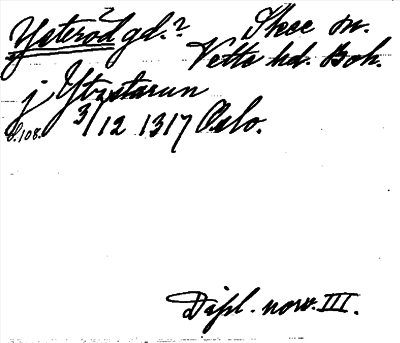 Ysteröd gd.? Skee sn.
?
Vette hd. Boh.
j Ytzstarun
S. 108. 3/12 1317 Oslo.
Dipl. norv. III.